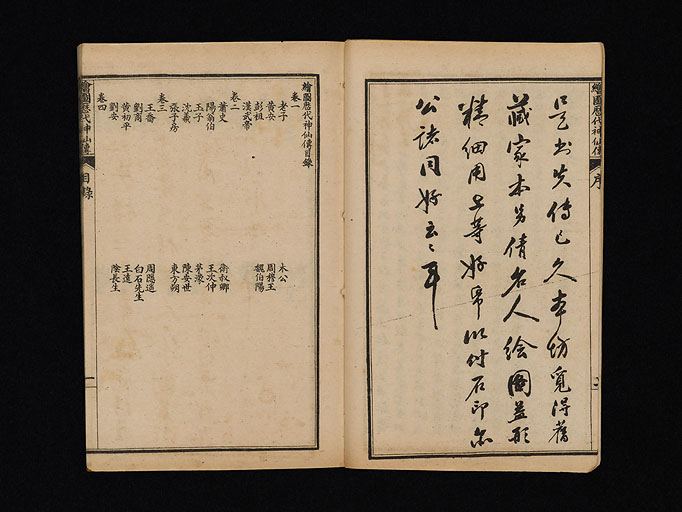 繪圖歷代神仙傳 序 一
是書失傳已久本坊覓得舊
藏家本另倩名人繪圖益形
精細用上等好帋以付石印
公諸同好云云耳
繪圖歷代神仙傳目錄
卷一
老子 木公
黃安 周穆王
彭祖 魏伯陽
漢武帝
卷二
蕭史 衛叔卿
陽翁伯 王次仲
玉子 茅濛
沈羲 陳安世
張子房 東方朔
卷三
王喬 周隱遙
劉商 白石先生
黃初平 王遠
劉安 陰長生
卷四
繪圖歷代神仙傳 目錄 一